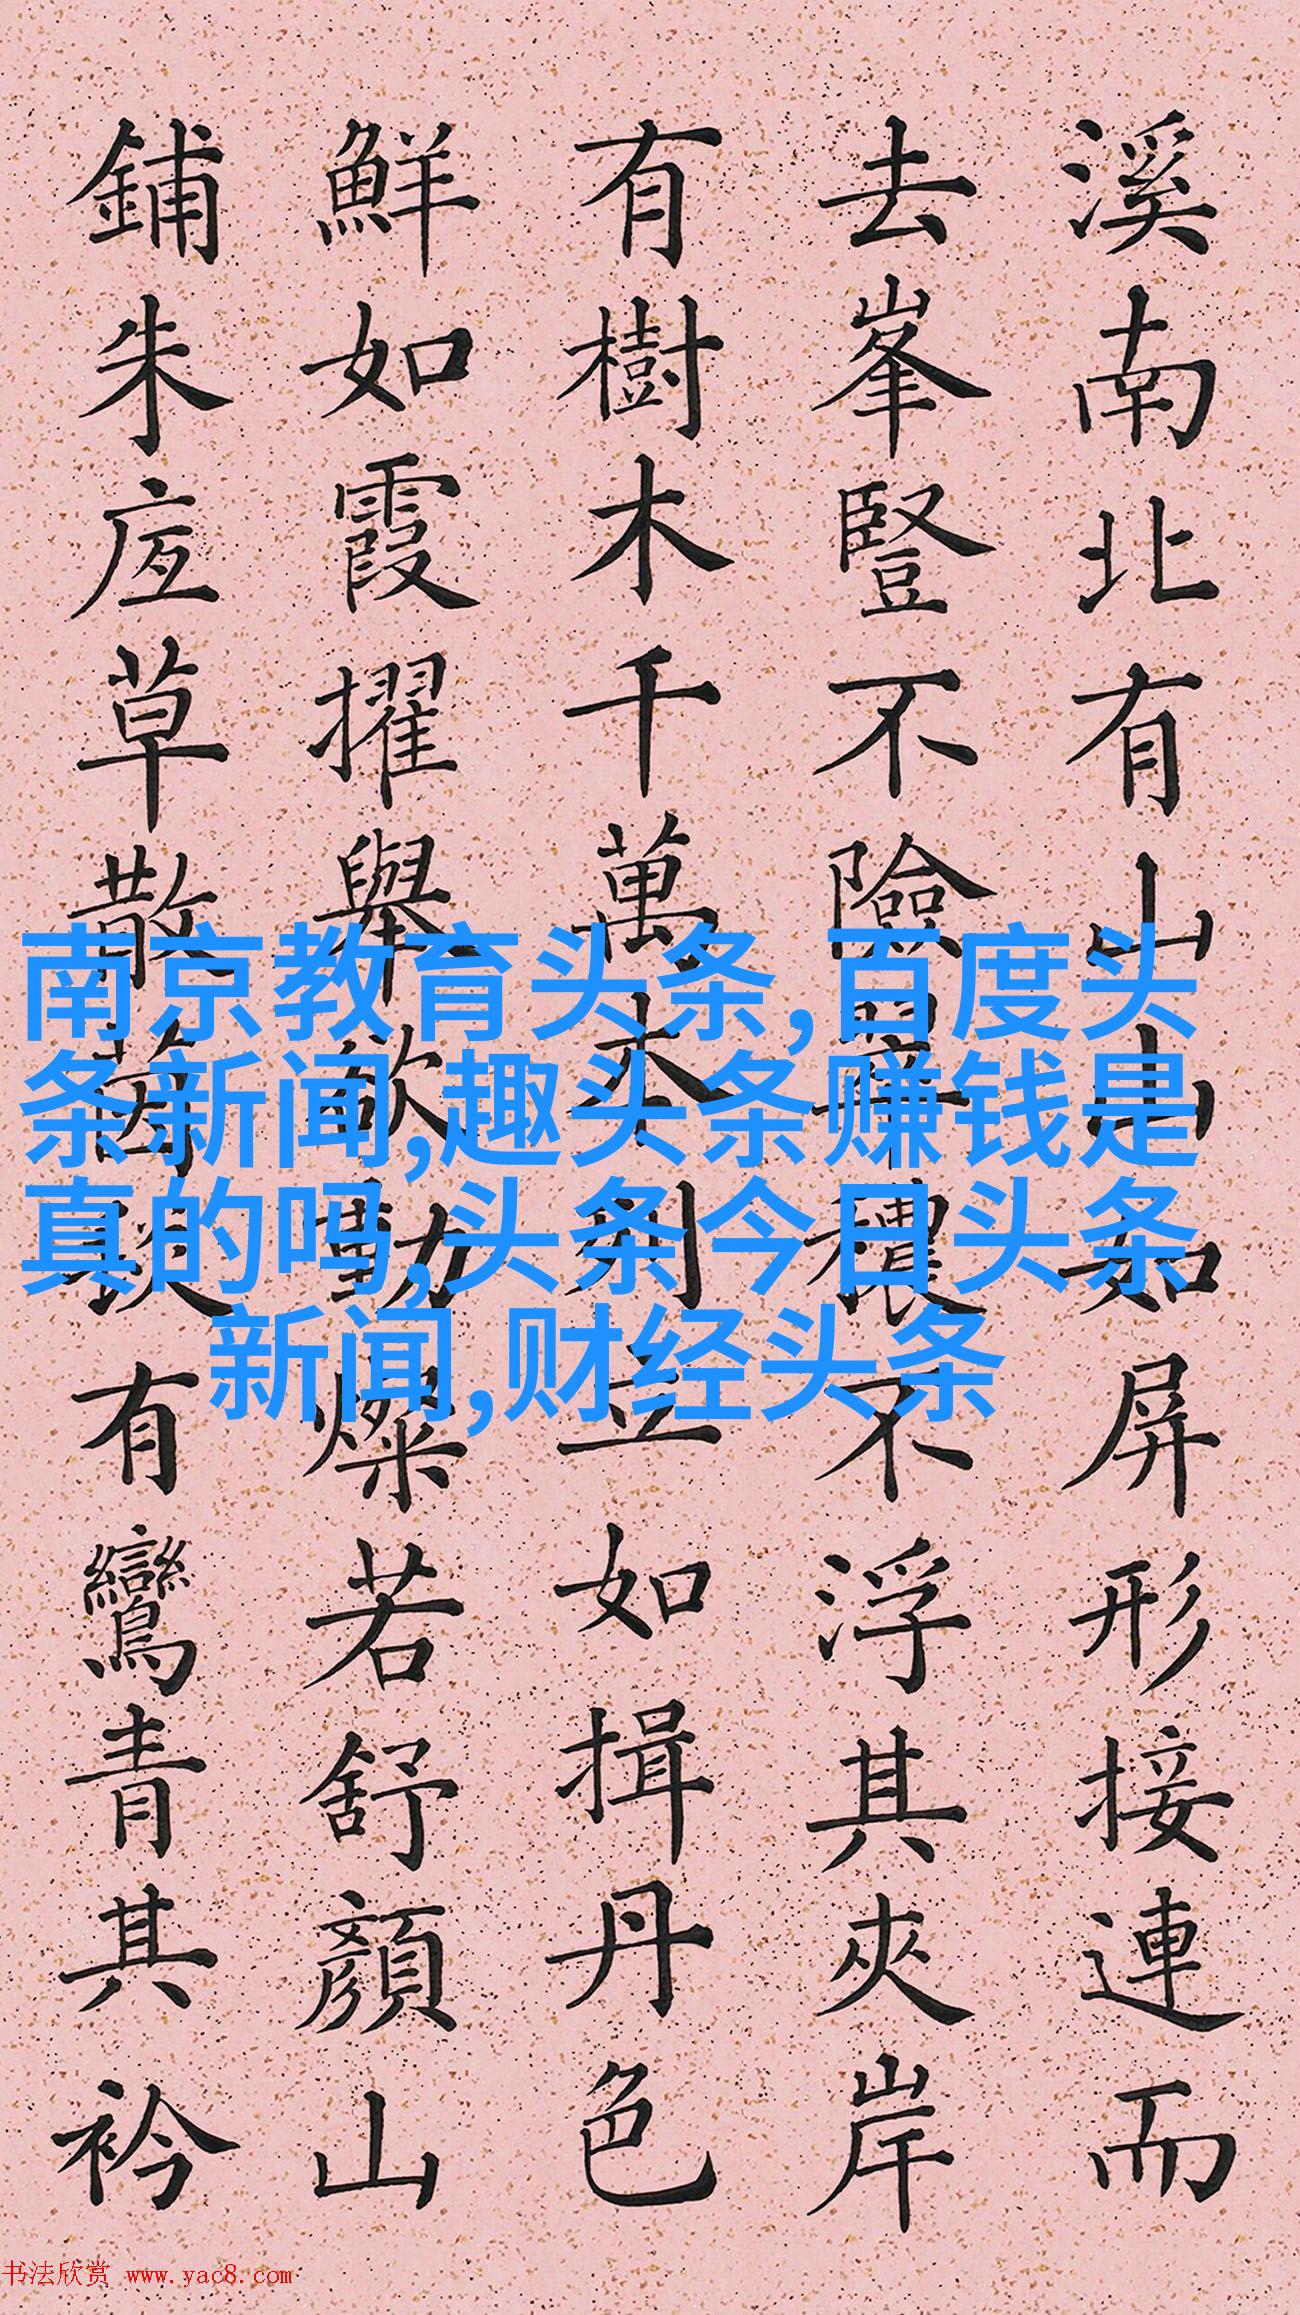 溪南北有山山如屏形接連而
去峯豎不險翠穠不浮其夾岸
有樹木千萬本列立如揖丹色
鮮如霞擢舉欲動燦若舒顏山
鋪朱底草散茵毯有鸞青其衿
南京教育头条,百度头
条新闻,趣头条赚钱是
真的吗,头条今日头条
新闻,财经头条
书法欣赏 www.yac8.com